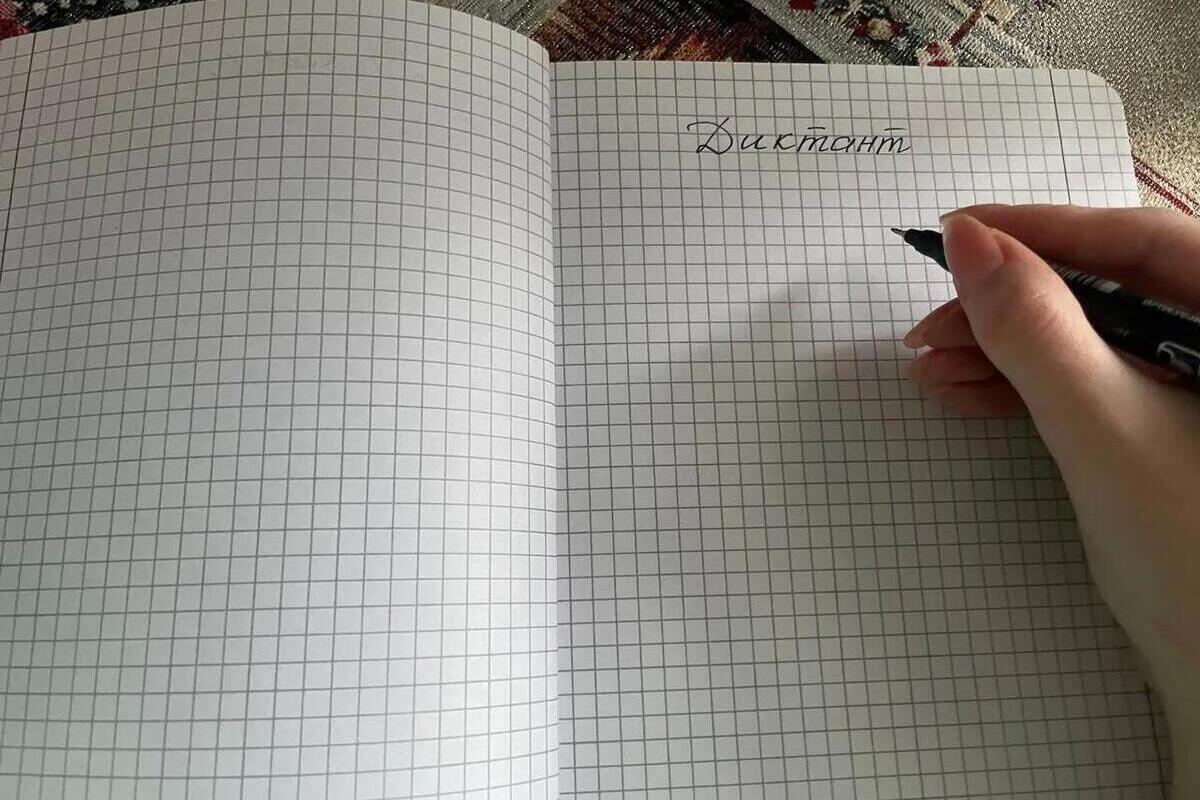 Диктант